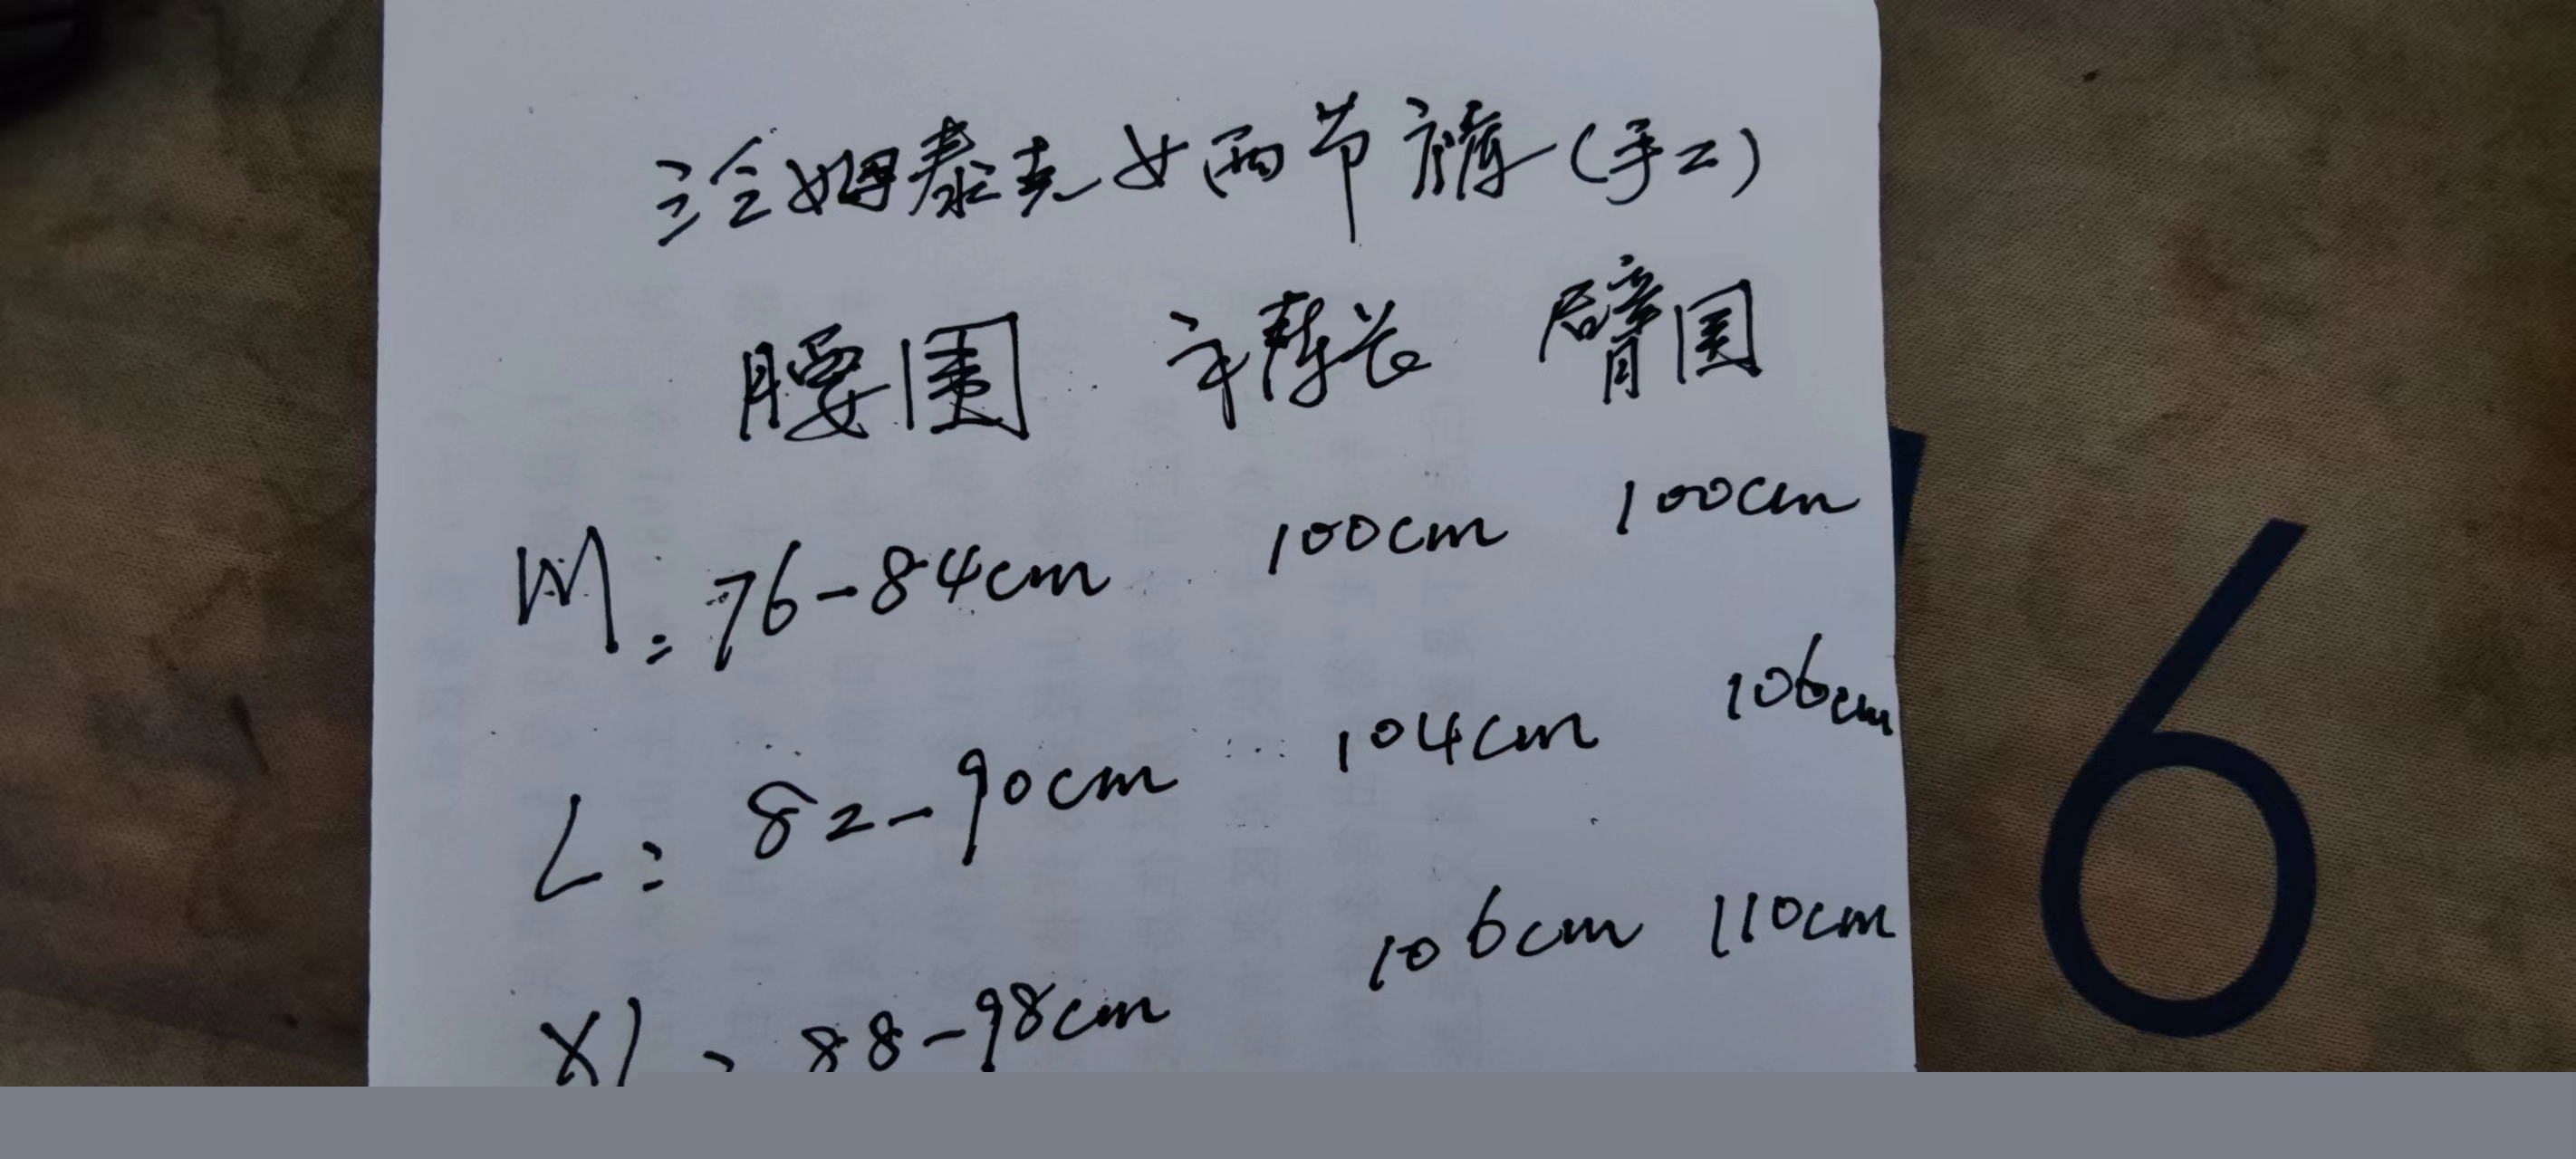 冷姆泰克女两节裤(手工)
腰围 裤长 臂围
M: 76-84cm 100cm 100cm
L: 82-90cm 104cm 106cm
XL: 88-98cm 106cm 110cm
6